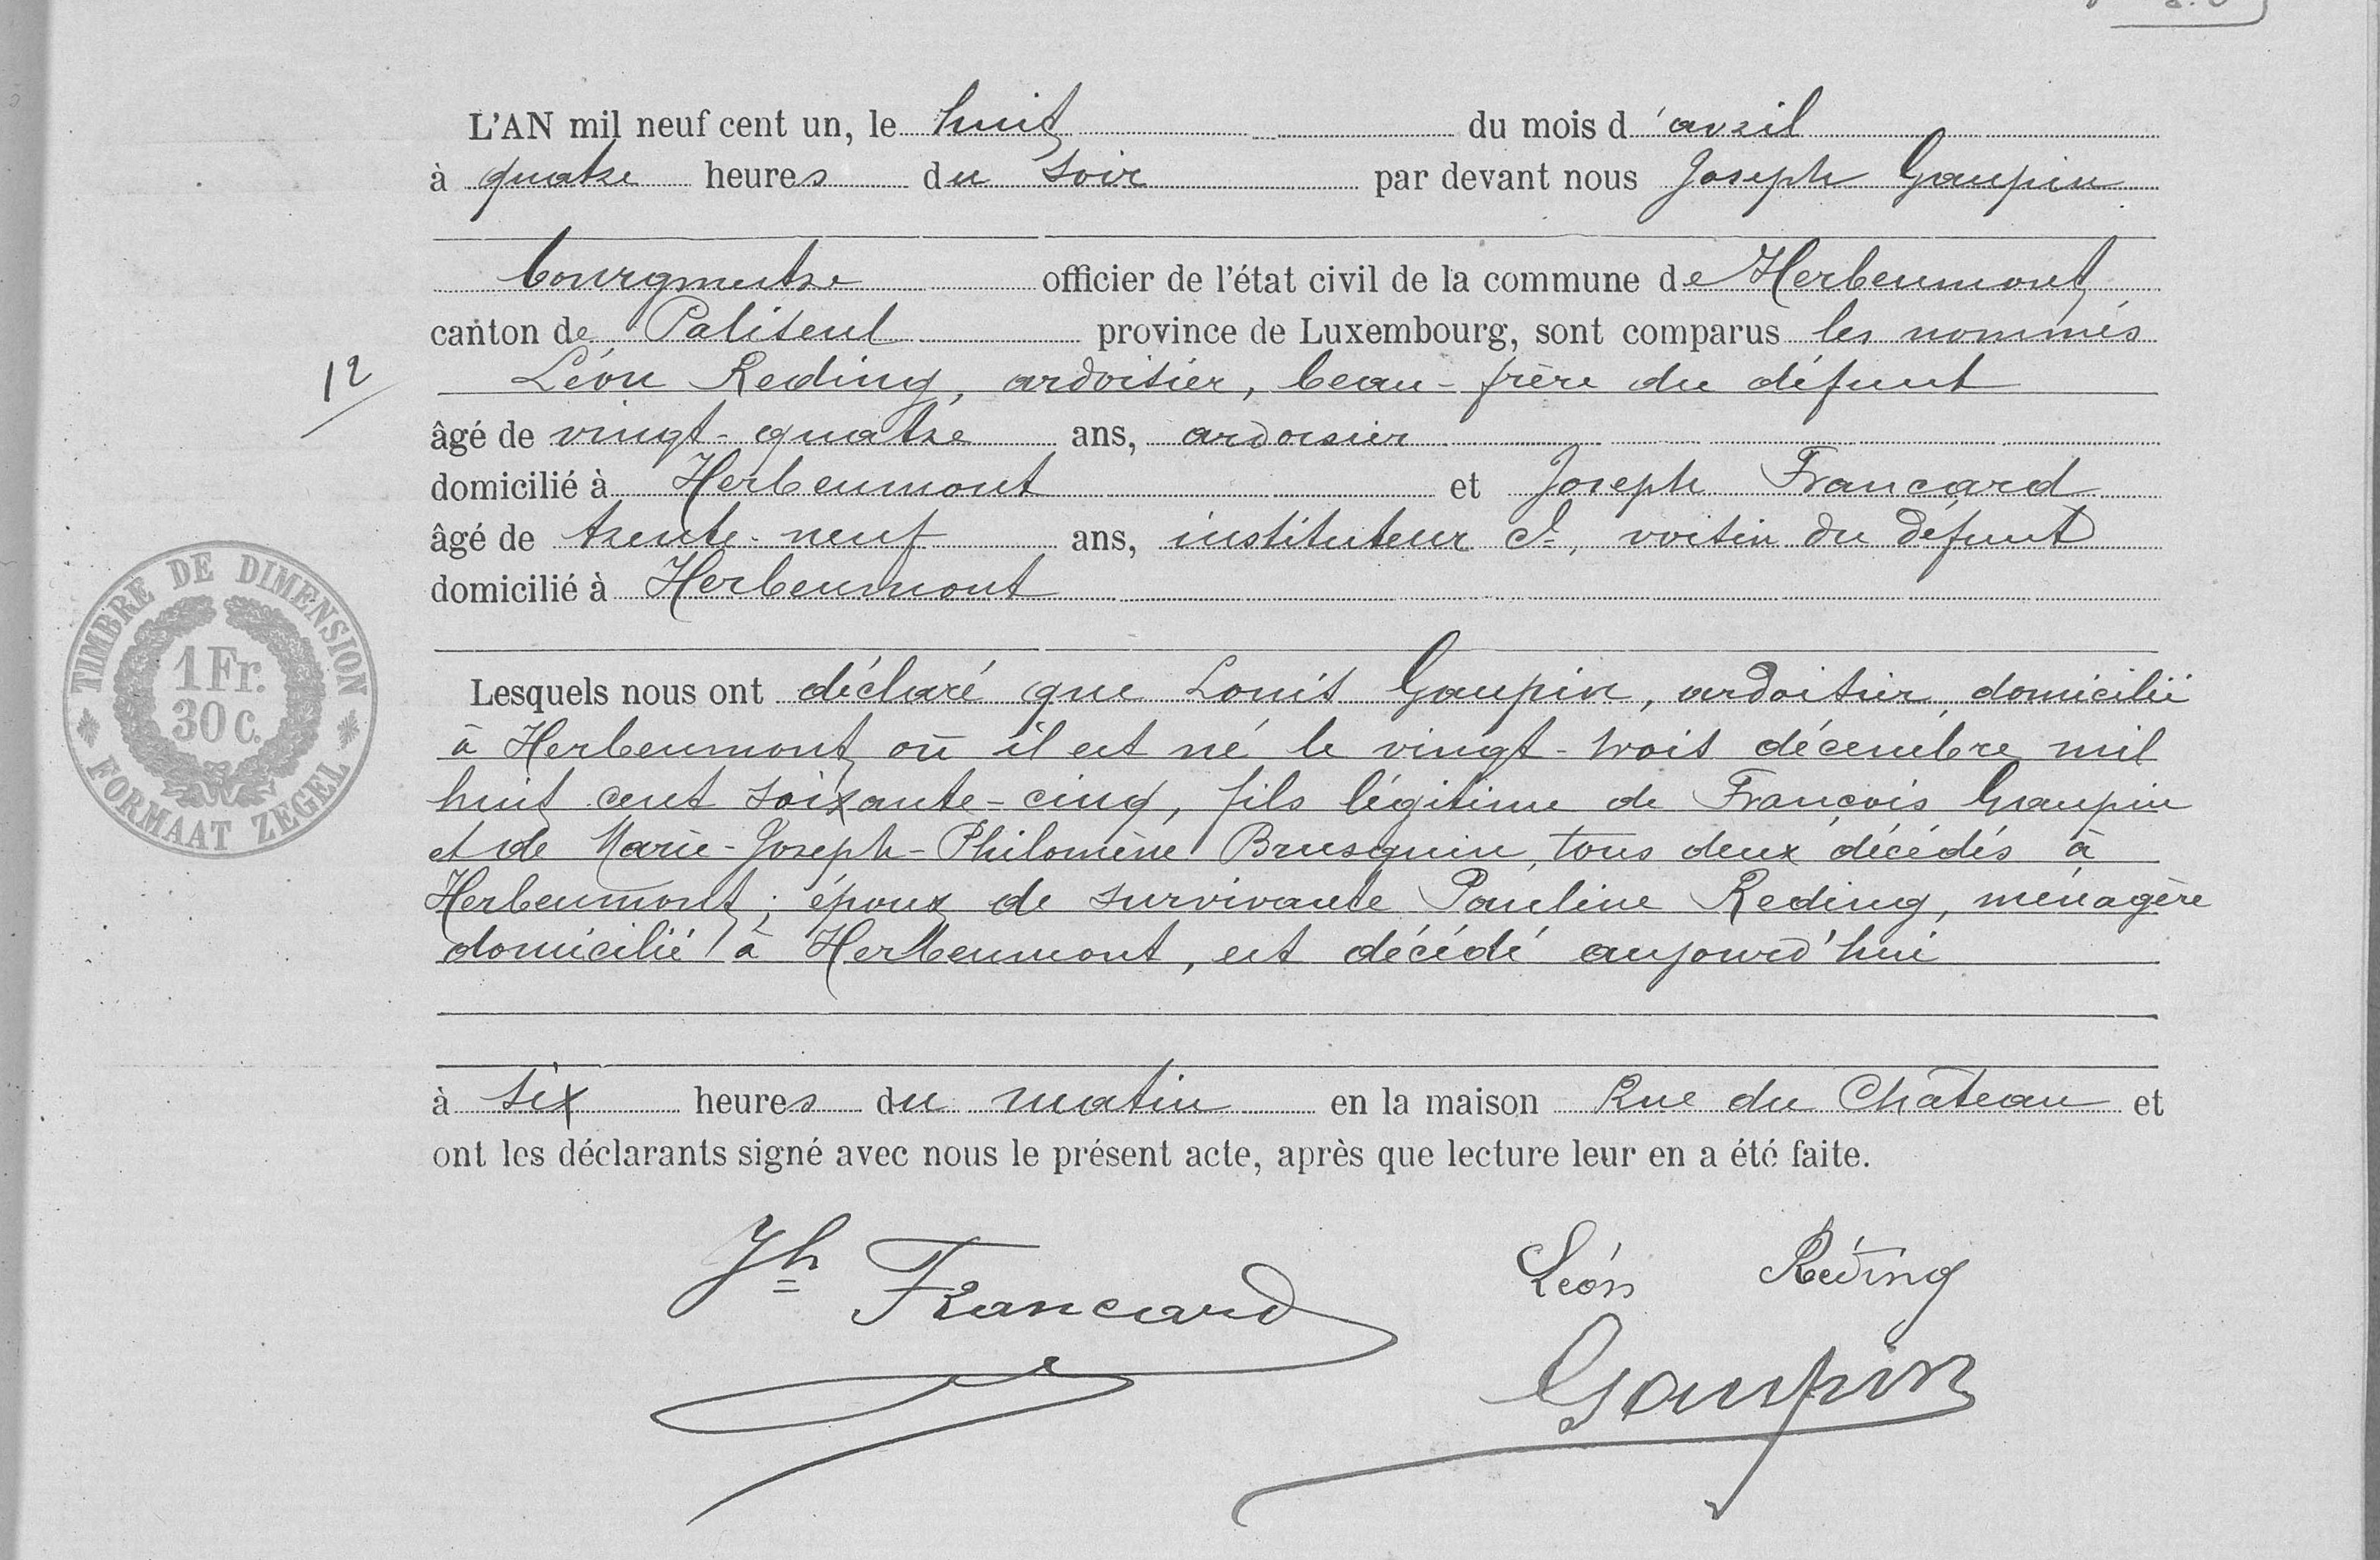 L'AN mil neuf cent un, le huit du mois d'avril
à quatre heures du soir par devant nous Joseph Gaupin
bourgmestre officier de l'état civil de la commune de Herbeumont
canton de Paliseul province de Luxembourg, sont comparus les nommés
12
Léon Reding, ardoisier, beau-frère du défunt
âgé de vingt-quatre ans, ardoisier
domicilié à Herbeumont et Joseph Francard
âgé de trente-neuf ans, instituteur cl, voisin du défunt
domicilié à Herbeumont
TIMBRE DE DIMENSION
1 Fr.
30 c.
FORMAAT ZEGEL
Lesquels nous ont déclaré que Louis Gaupin, ardoisier, domicilié
à Herbeumont où il est né le vingt-trois décembre mil
huit cent soixante-cinq, fils légitime de François Gaupin
et de Marie-Joseph-Philomène Brusquin, tous deux décédés à
Herbeumont; époux de survivante Pauline Reding, ménagère
domicilié à Herbeumont, est décédé aujourd'hui
à six heures du matin en la maison Rue du Château et
ont les déclarants signé avec nous le présent acte, après que lecture leur en a été faite.
Jh Francard Léon Réding
Gaupin